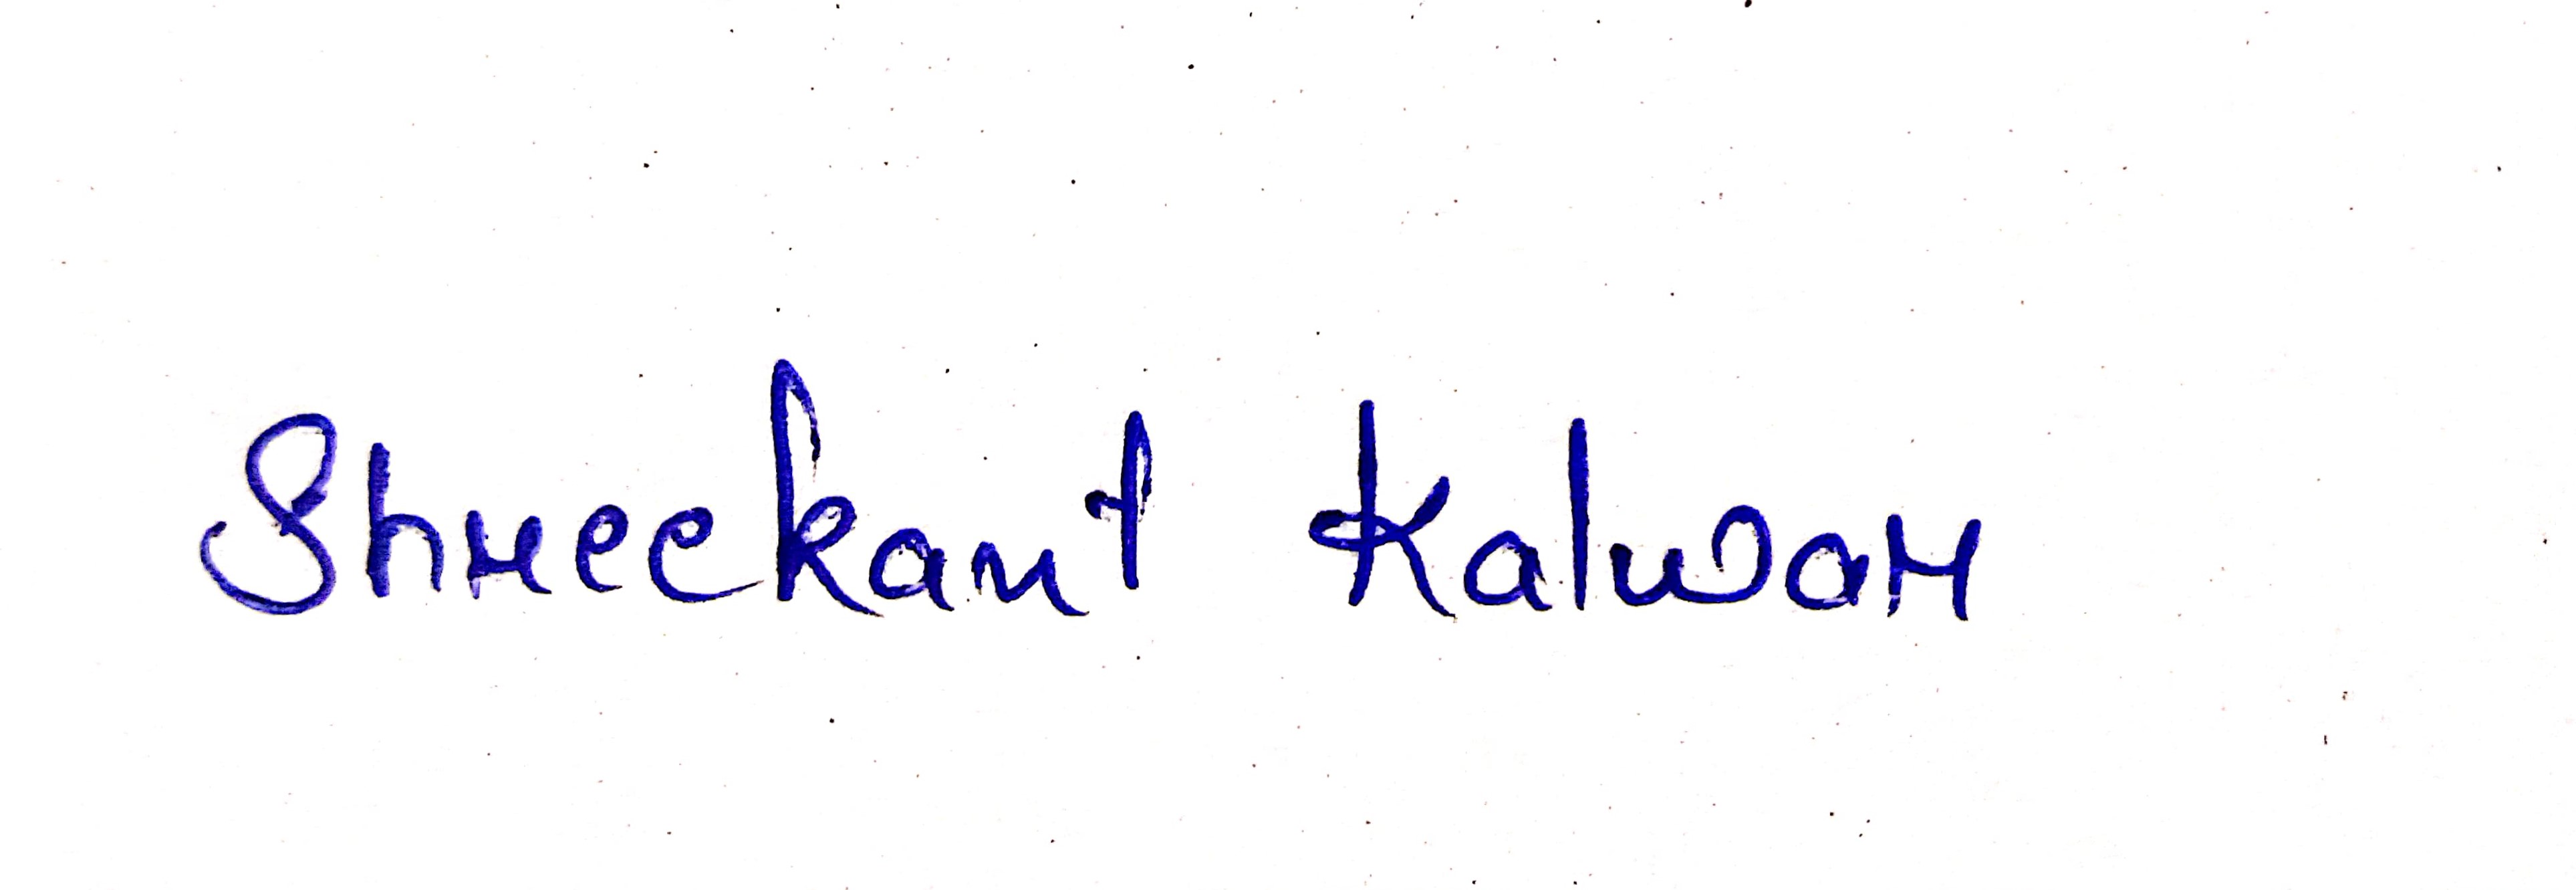 Shreekant Kalwar